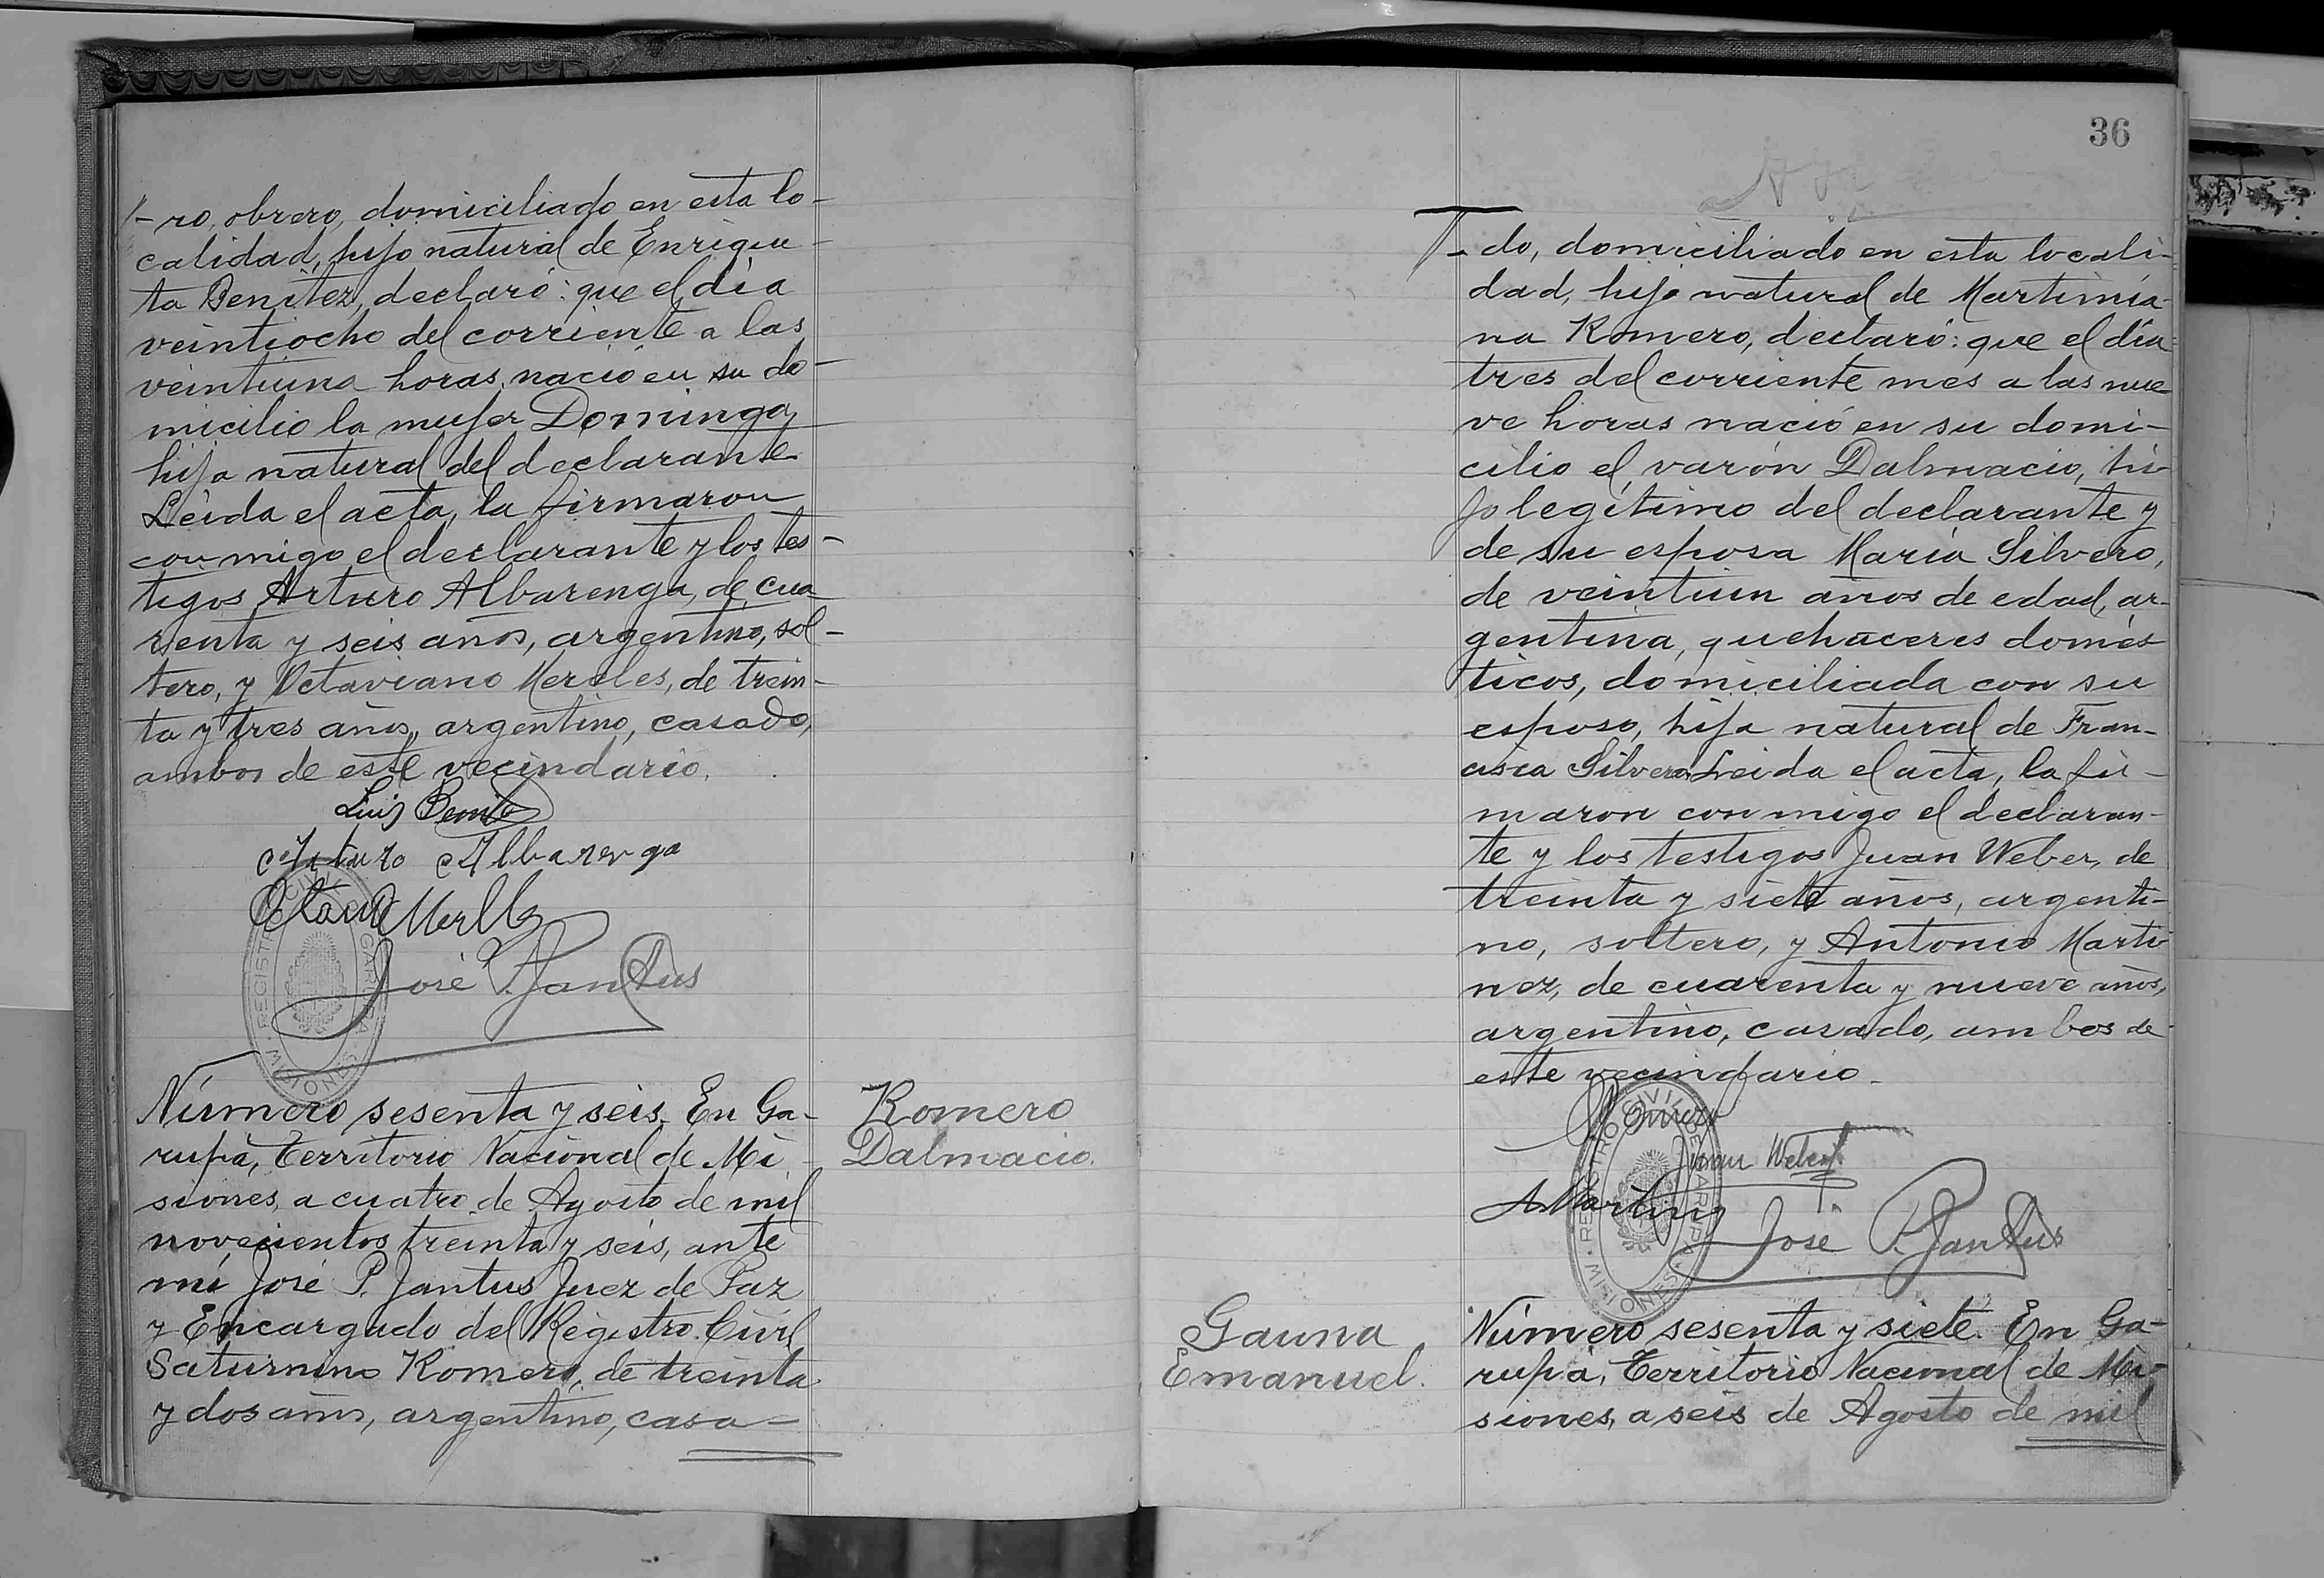 -ro, obrero, domiciliado en esta lo-
calidad, hijo natural de Enrique-
ta Benítez, declaró: que el día
veintiocho del corriente a las
veintiuna horas, nació en su do-
micilio la mujer Dominga,
hija natural del declarante.
Leída el acta, la firmaron
conmigo el declarante y los tes-
tigos Arturo Albarenga, de cua
renta y seis años, argentino, sol-
tero, y Octaviano Mereles, de trein-
ta y tres años, argentino, casado,
ambos de este vecindario.
Luis Benite
Arturo Albarenga
José P. Jantus
REGISTRO CIVIL DE GARUPA · MISIONES ·
Número sesenta y seis. En Ga-
rupá, Territorio Nacional de Mi-
siones, a cuatro de Agosto de mil
novecientos treinta y seis, ante
mí José P. Jantus Juez de Paz
y Encargado del Registro Civil
Saturnino Romero, de treinta
y dos años, argentino, casa-
Romero
Dalmacio.
36
-do, domiciliado en esta locali-
dad, hijo natural de Martinia-
na Romero, declaró: que el día
tres del corriente mes a las nue
ve horas nació en su domi-
cilio el varón Dalmacio, hi-
jo legítimo del declarante y
de su esposa María Silvero,
de veintiun años de edad, ar-
gentina, quehaceres domés
ticos, domiciliada con su
esposo, hija natural de Fran-
cisca Silvero. Leida el acta, la fir-
maron conmigo el declaran-
te y los testigos Juan Weber, de
treinta y siete años, argenti-
no, soltero, y Antonio Marti
nez, de cuarenta y nueve años,
argentino, casado, ambos de
este vecindario.
Romero
Juan Weber
A. Martinez
José P. Jantus
REGISTRO CIVIL DE GARUPA · MISIONES ·
Gauna
Emanuel.
Número sesenta y siete. En Ga-
rupá, Territorio Nacional de Mi-
siones, a seis de Agosto de mil